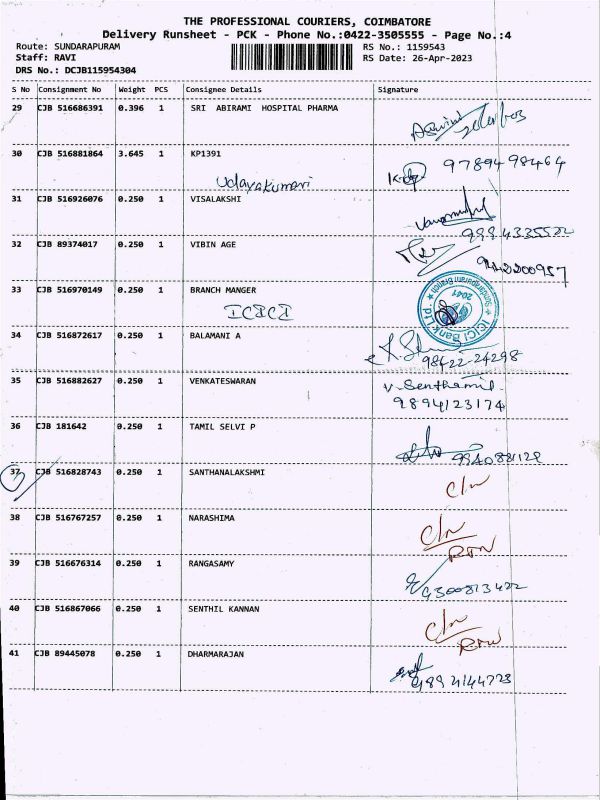 THE PROFESSIONAL COURIERS, COIMBATORE
Delivery Runsheet - PCK - Phone No.:0422-3505555 - Page No.:4
Route: SUNDARAPURAM RS No.: 1159543
Staff: RAVI RS Date: 26-Apr-2023
DRS No.: DCJB115954304
S No Consignment No Weight PCS Consignee Details Signature
29 CJB 516686391 0.396 1 SRI ABIRAMI HOSPITAL PHARMA
30 CJB 516881864 3.645 1 KP1391 9789498464
Udayakumari
31 CJB 516926076 0.250 1 VISALAKSHI
9994335522
32 CJB 89374017 0.250 1 VIBIN AGE
9442200957
33 CJB 516970149 0.250 1 BRANCH MANGER
ICICI
ICICI Bank Ltd. Sundarapuram Branch 2041
34 CJB 516872617 0.250 1 BALAMANI A
98422-24298
35 CJB 516882627 0.250 1 VENKATESWARAN V. Senthamil
9894123174
36 CJB 181642 0.250 1 TAMIL SELVI P
9940881128
37 CJB 516828743 0.250 1 SANTHANALAKSHMI C/N
38 CJB 516767257 0.250 1 NARASHIMA C/N
RTN
39 CJB 516676314 0.250 1 RANGASAMY
9300813422
40 CJB 516867066 0.250 1 SENTHIL KANNAN C/N
RTN
41 CJB 89445078 0.250 1 DHARMARAJAN
9894144723